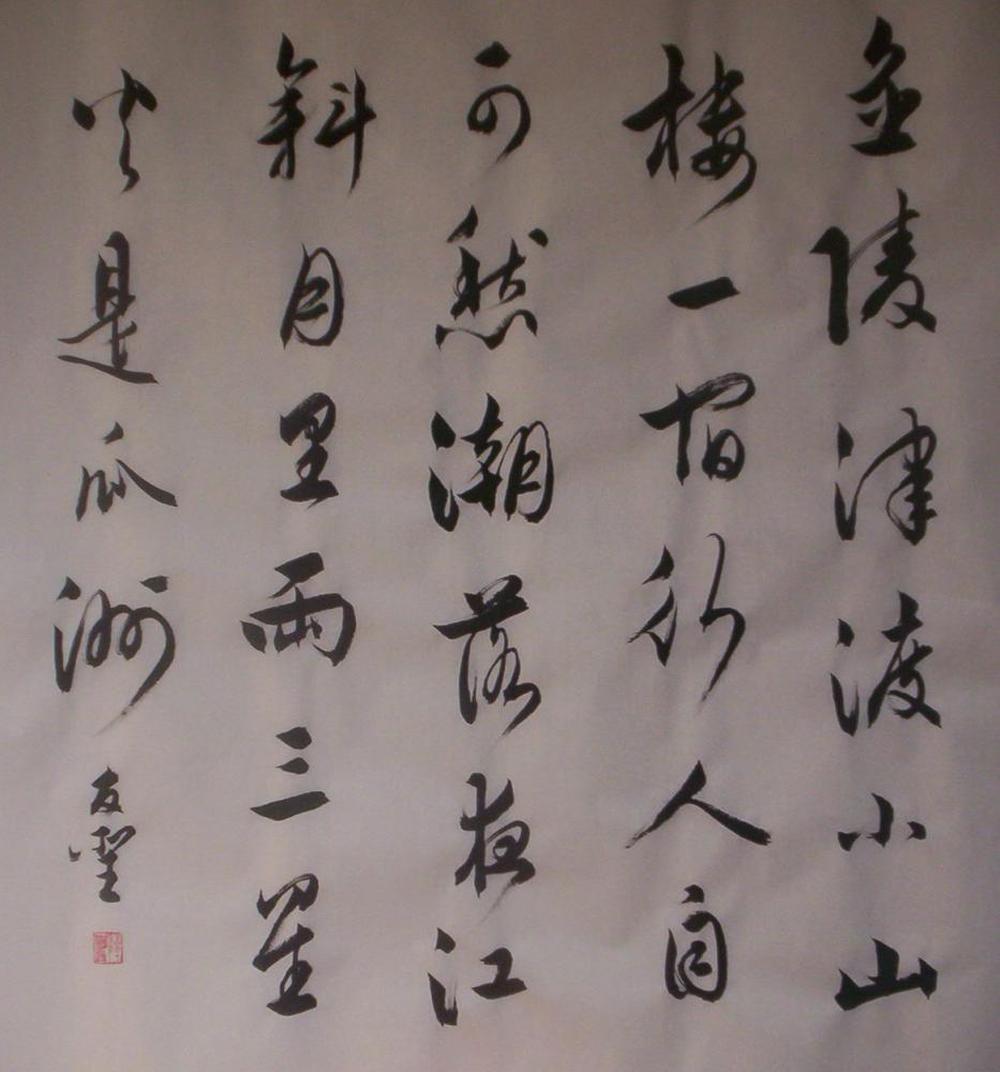 金陵津渡小山
樓一宿行人自
可愁潮落夜江
斜月里兩三星
火是瓜洲
友聖